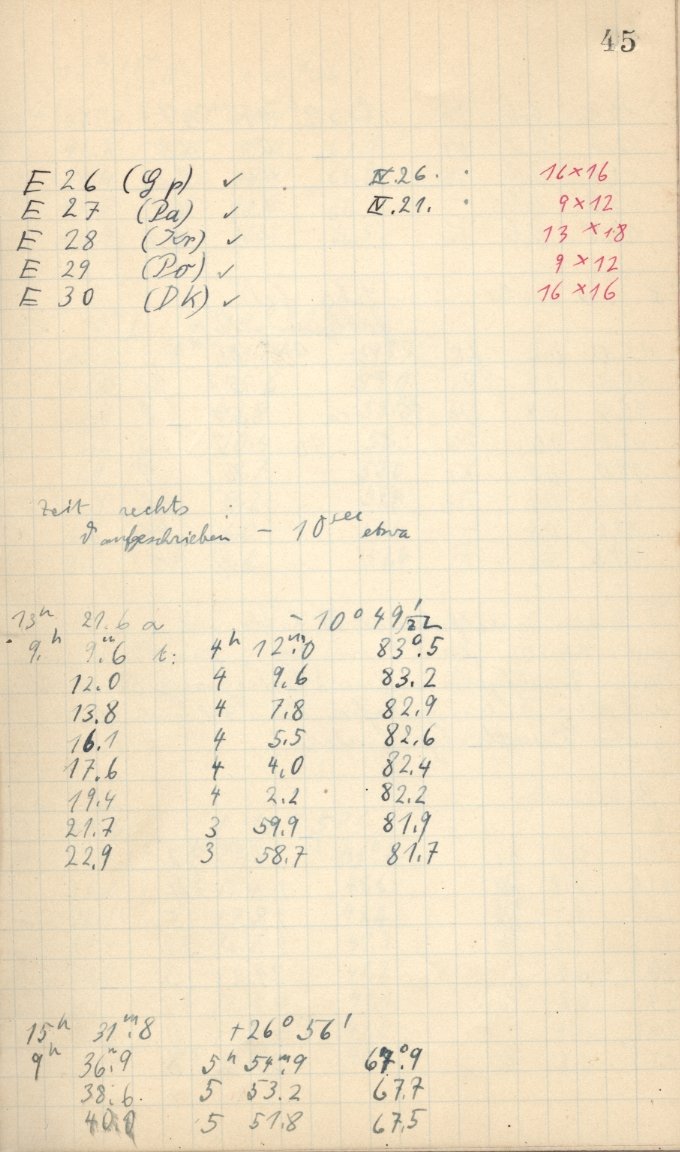 45
E 26 (Gp) ✓ IV.26. 16×16
E 27 (Pa) ✓ IV.21. 9×12
E 28 (Kr) ✓ 13×18
E 29 (Po) ✓ 9×12
E 30 (DK) ✓ 16×16
Zeit rechts :
aufgeschrieben – 10 sec etwa
13h 21.6 α – 10° 49'
9h 9m.6 t: 4h 12m.0 83°.5
12.0 4 9.6 83.2
13.8 4 7.8 82.9
16.1 4 5.5 82.6
17.6 4 4.0 82.4
19.4 4 2.2 82.2
21.7 3 59.9 81.9
22.9 3 58.7 81.7
15h 31m.8 +26° 56'
9h 36m.9 5h 54m.9 67°.9
38.6 5 53.2 67.7
5 51.8 67.5